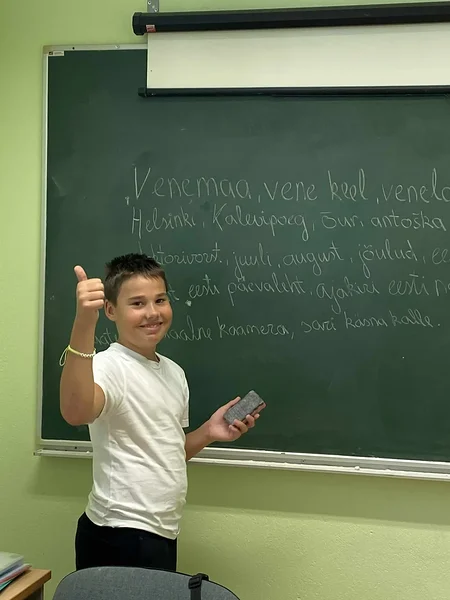 Venemaa, vene keel, venela
Helsinki, Kalevipoeg, Õun, antoška
juuli, august, jõulud, ee
eesti päevaleht, ajakiri eesti n
kaamera, sari käsna kalle.